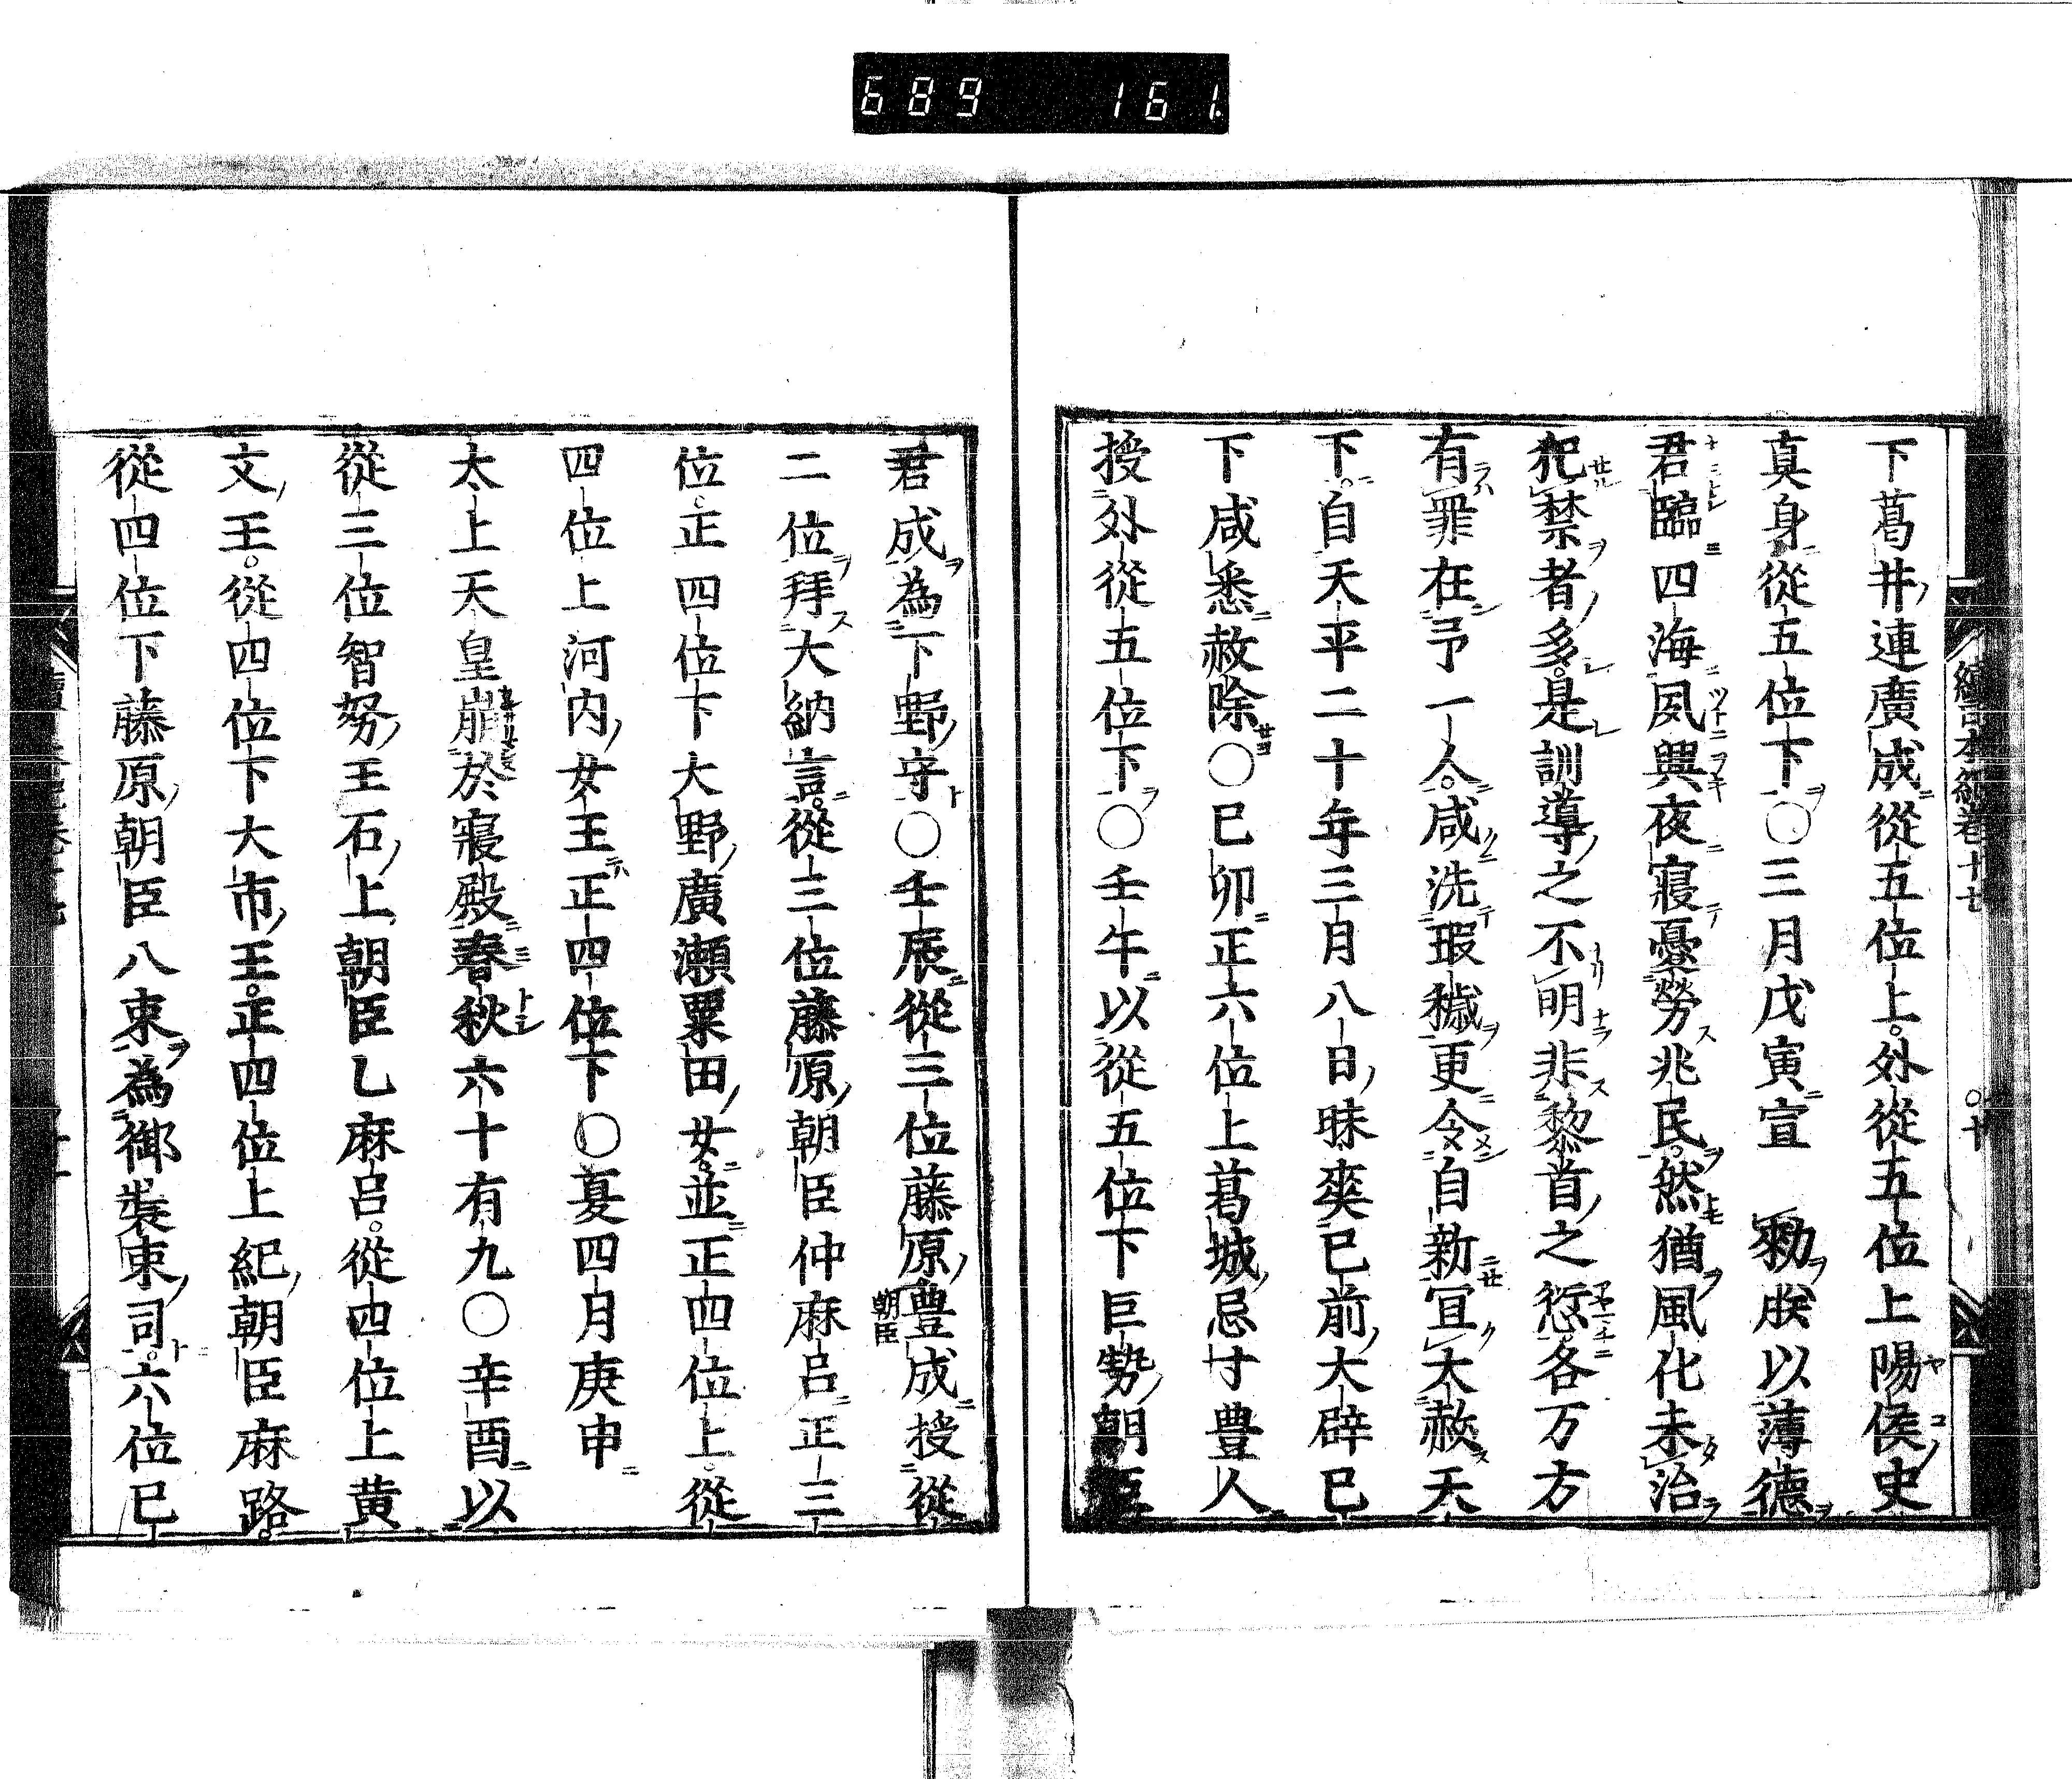 689 161
續日本紀卷十七 ○廿
下葛井連廣成從五位上。外從五位上陽侯史
真身從五位下○三月戊寅宣 勑朕以薄德
君臨四海夙興夜寢憂勞兆民然猶風化未治
犯禁者多。是訓導之不明非黎首之愆各万方
有罪在予一人。咸洗瑕穢更令自新宜大赦天
下。自天平二十年三月八日昧爽已前大辟已
下咸悉赦除○已卯正六位上葛城忌寸豊人
授外從五位下○壬午以從五位下巨勢朝臣
君成為下野守○壬辰從三位藤原豊成授從
朝臣
二位拜大納言。從三位藤原朝臣仲麻呂正三
位。正四位下大野廣瀬粟田女。並正四位上。從
四位上河内女王正四位下○夏四月庚申
太上天皇崩於寢殿春秋六十有九○辛酉以
從三位智努王石上朝臣乙麻呂。從四位上黄
文王。從四位下大市王。正四位上紀朝臣麻路。
從四位下藤原朝臣八束為御裝束司。六位已